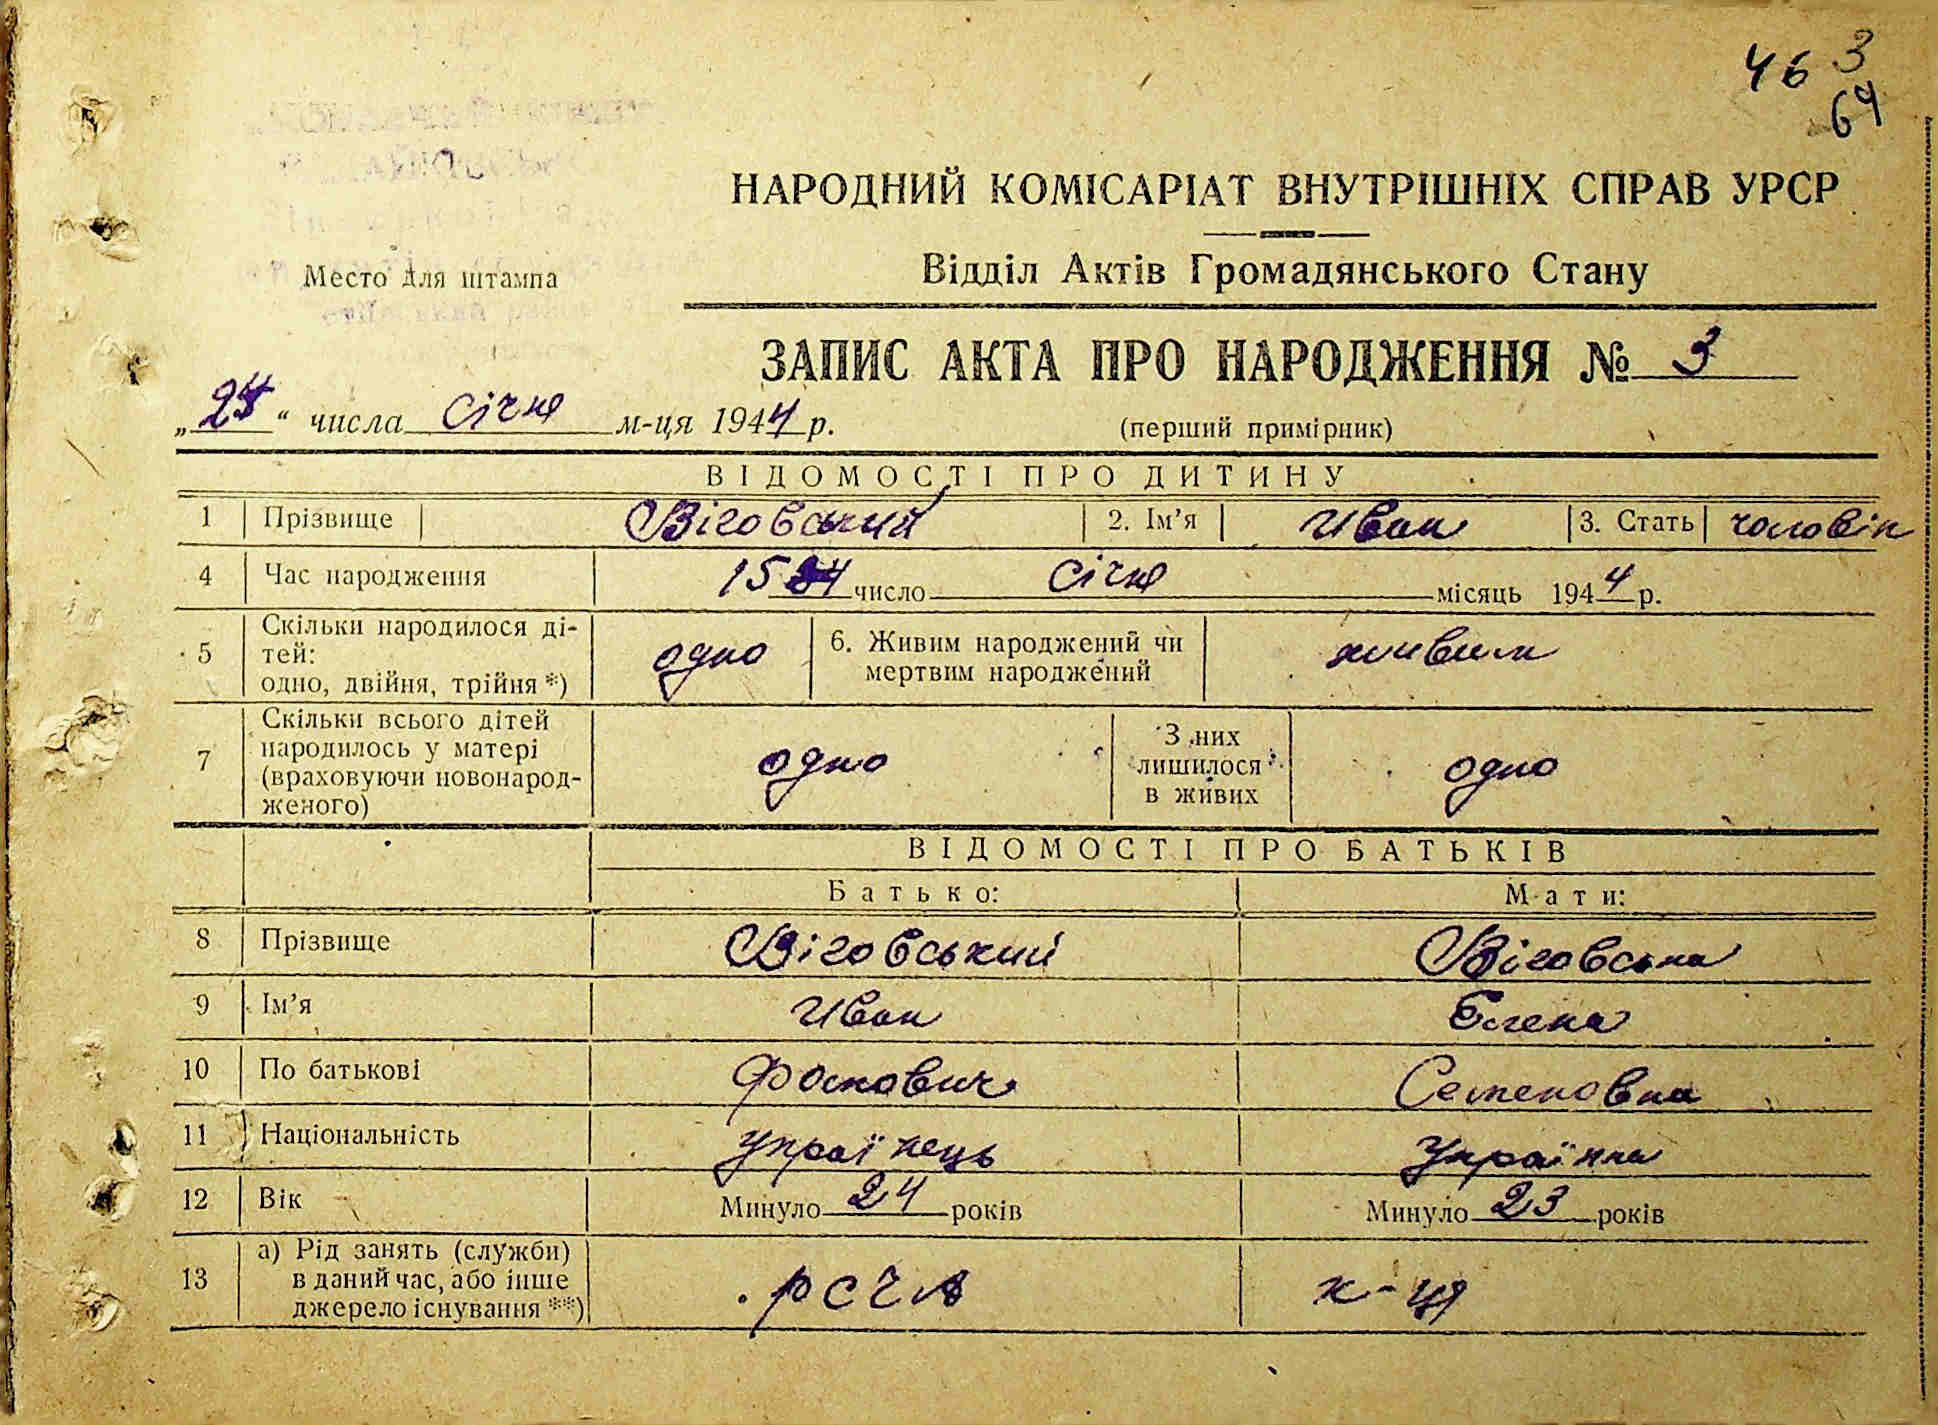 46 3
64
НАРОДНИЙ КОМІСАРІАТ ВНУТРІШНІХ СПРАВ УРСР
Відділ Актів Громадянського Стану
Место для штампа
ЗАПИС АКТА ПРО НАРОДЖЕННЯ № 3
„24“ числа січня м-ця 1944 р.
(перший примірник)
ВІДОМОСТІ ПРО ДИТИНУ
1 Прізвище Віговський 2. Ім’я Иван 3. Стать чоловік
4 Час народження 15 число січня місяць 1944 р.
5 Скільки народилося ді-
тей:
одно, двійня, трійня *) одно 6. Живим народжений чи
мертвим народжений живим
7 Скільки всього дітей
народилось у матері
(враховуючи новонарод-
женого) одно З них
лишилося
в живих одно
ВІДОМОСТІ ПРО БАТЬКІВ
Батько: Мати:
8 Прізвище Віговський Віговська
9 Ім’я Иван Елена
10 По батькові Фокович Семеновна
11 Національність українець Українка
12 Вік Минуло 24 років Минуло 23 років
13 а) Рід занять (служби)
в даний час, або інше
джерело існування **) РСЧА к-ця